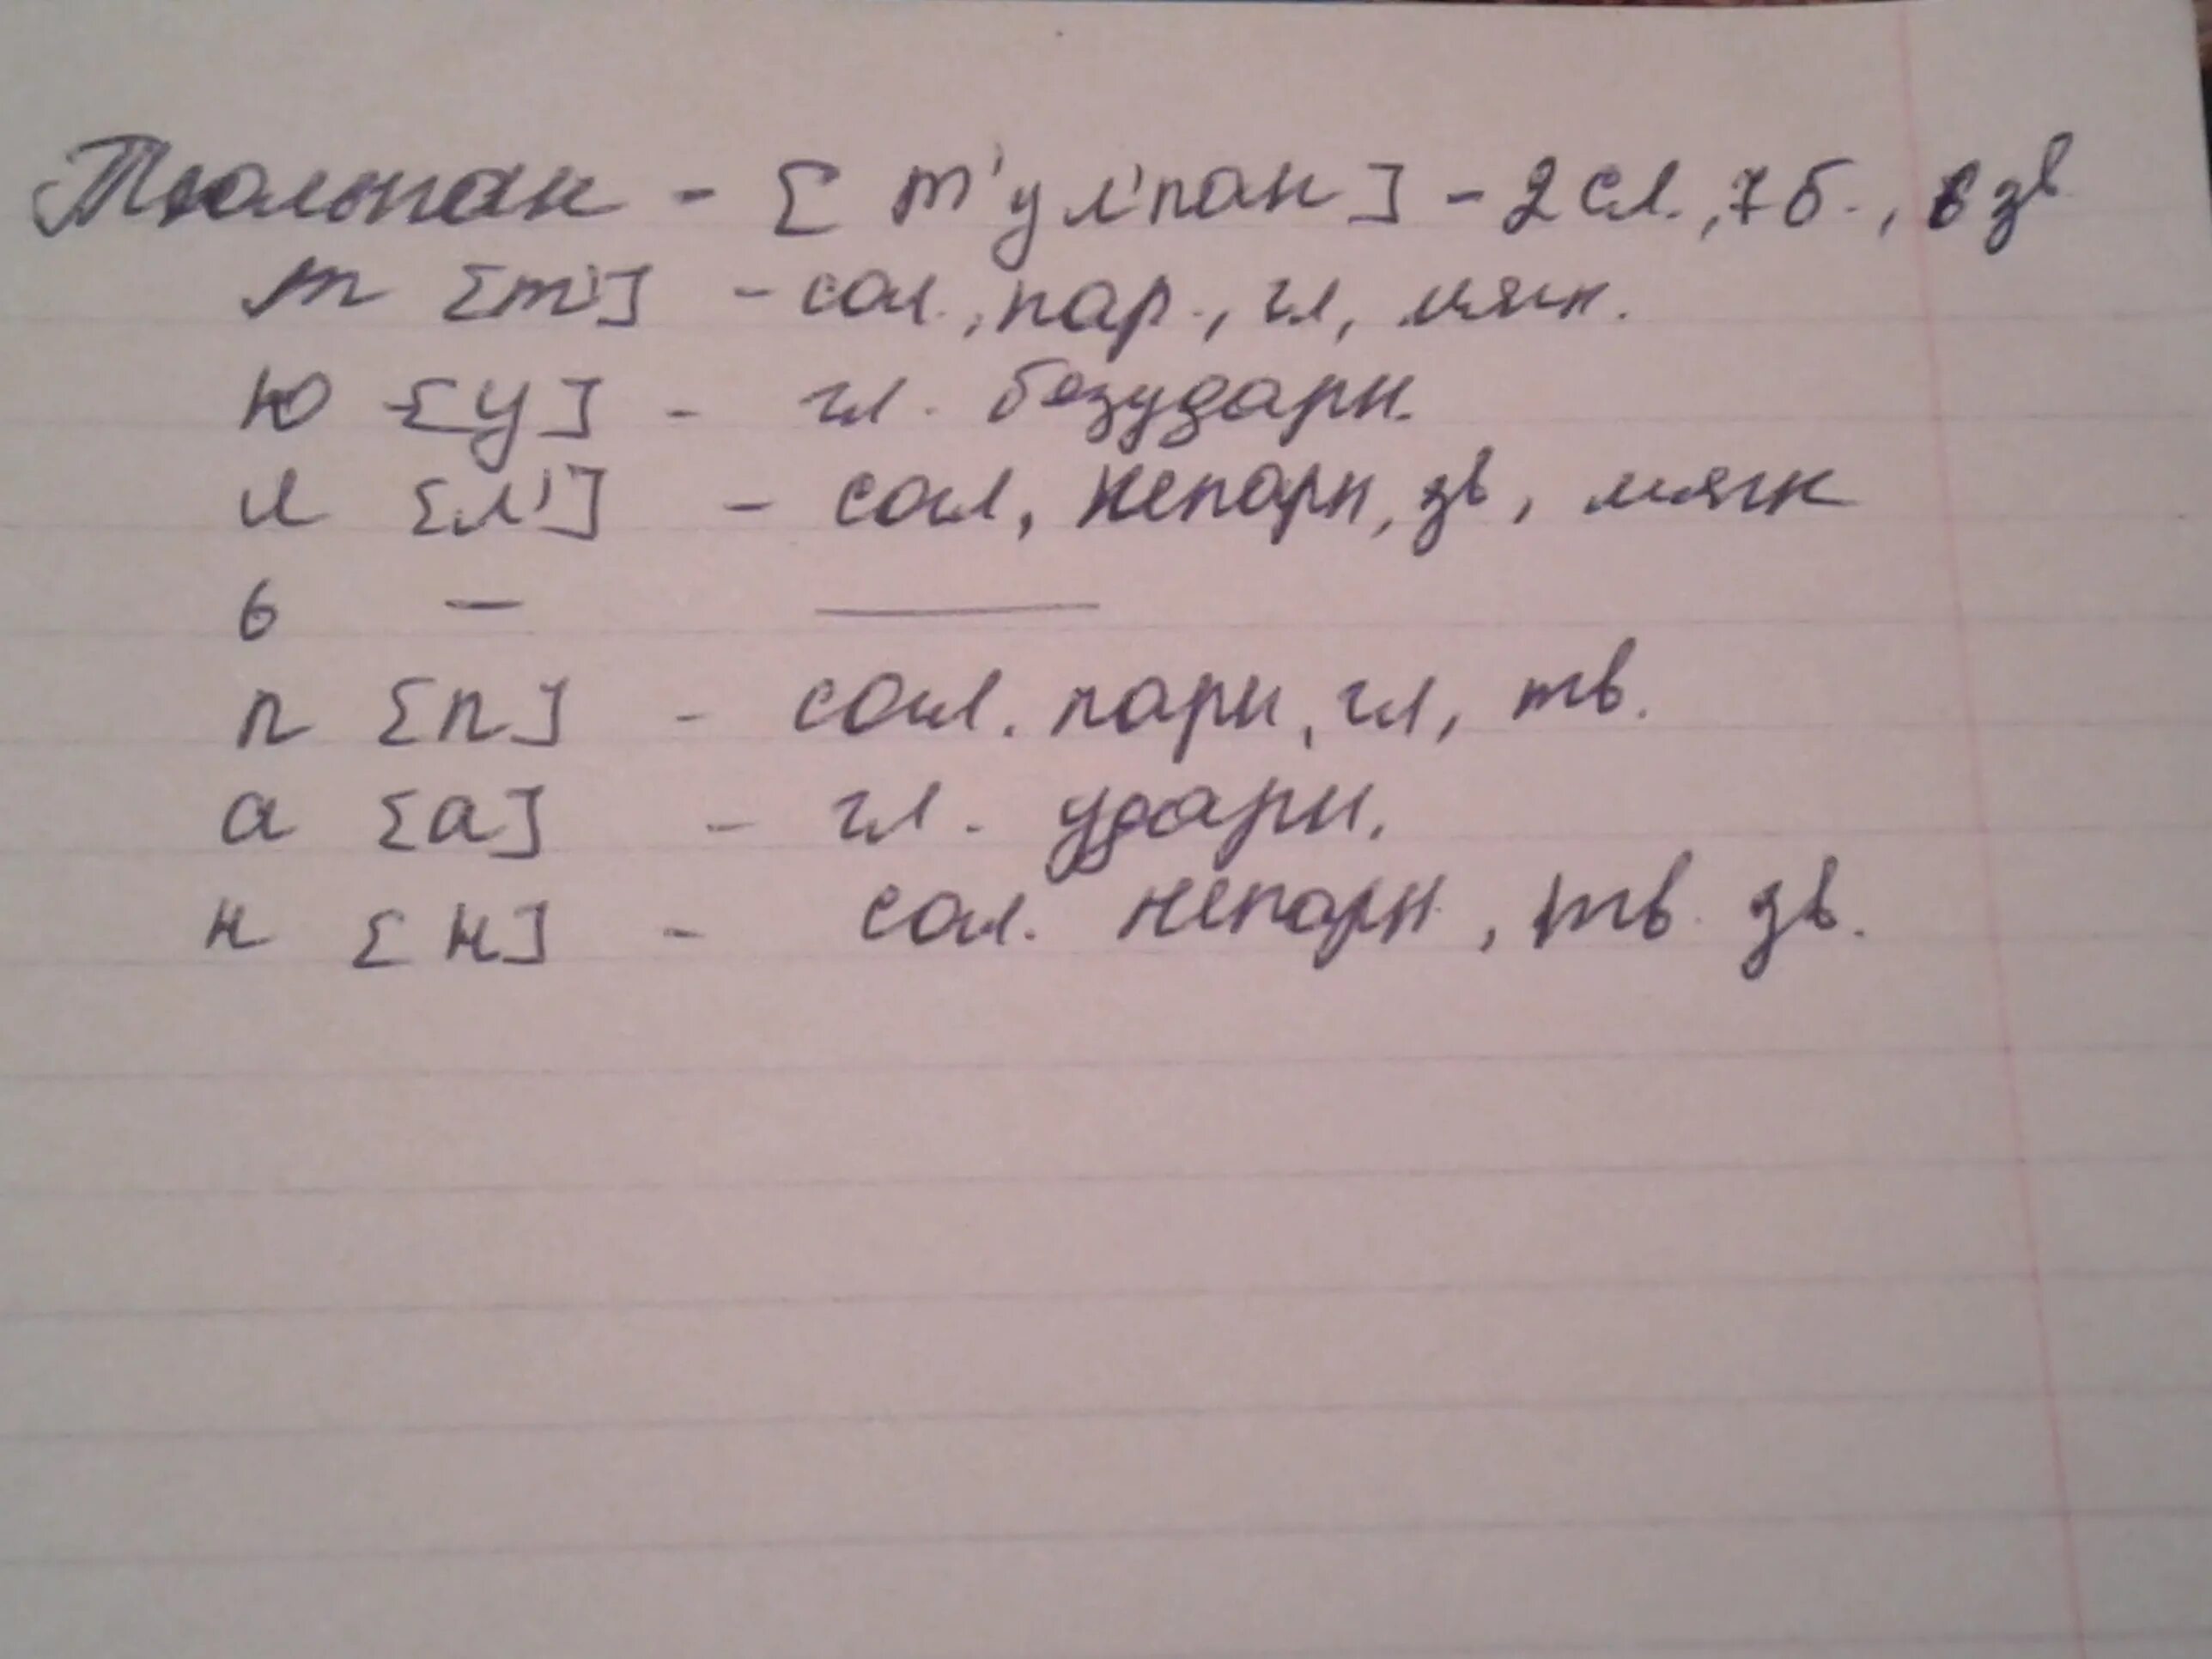 Тюльпан - [т'ул'пан] - 2 сл., 7 б., 6 зв
т [т'] - сог., пар., гл, мягк.
ю - [у] - гл. безударн.
л [л'] - согл, непарн, зв, мягк
ь — —
п [п] - согл. парн, гл, тв.
а [а] - гл. ударн.
н [н] - сог. непарн, тв. зв.